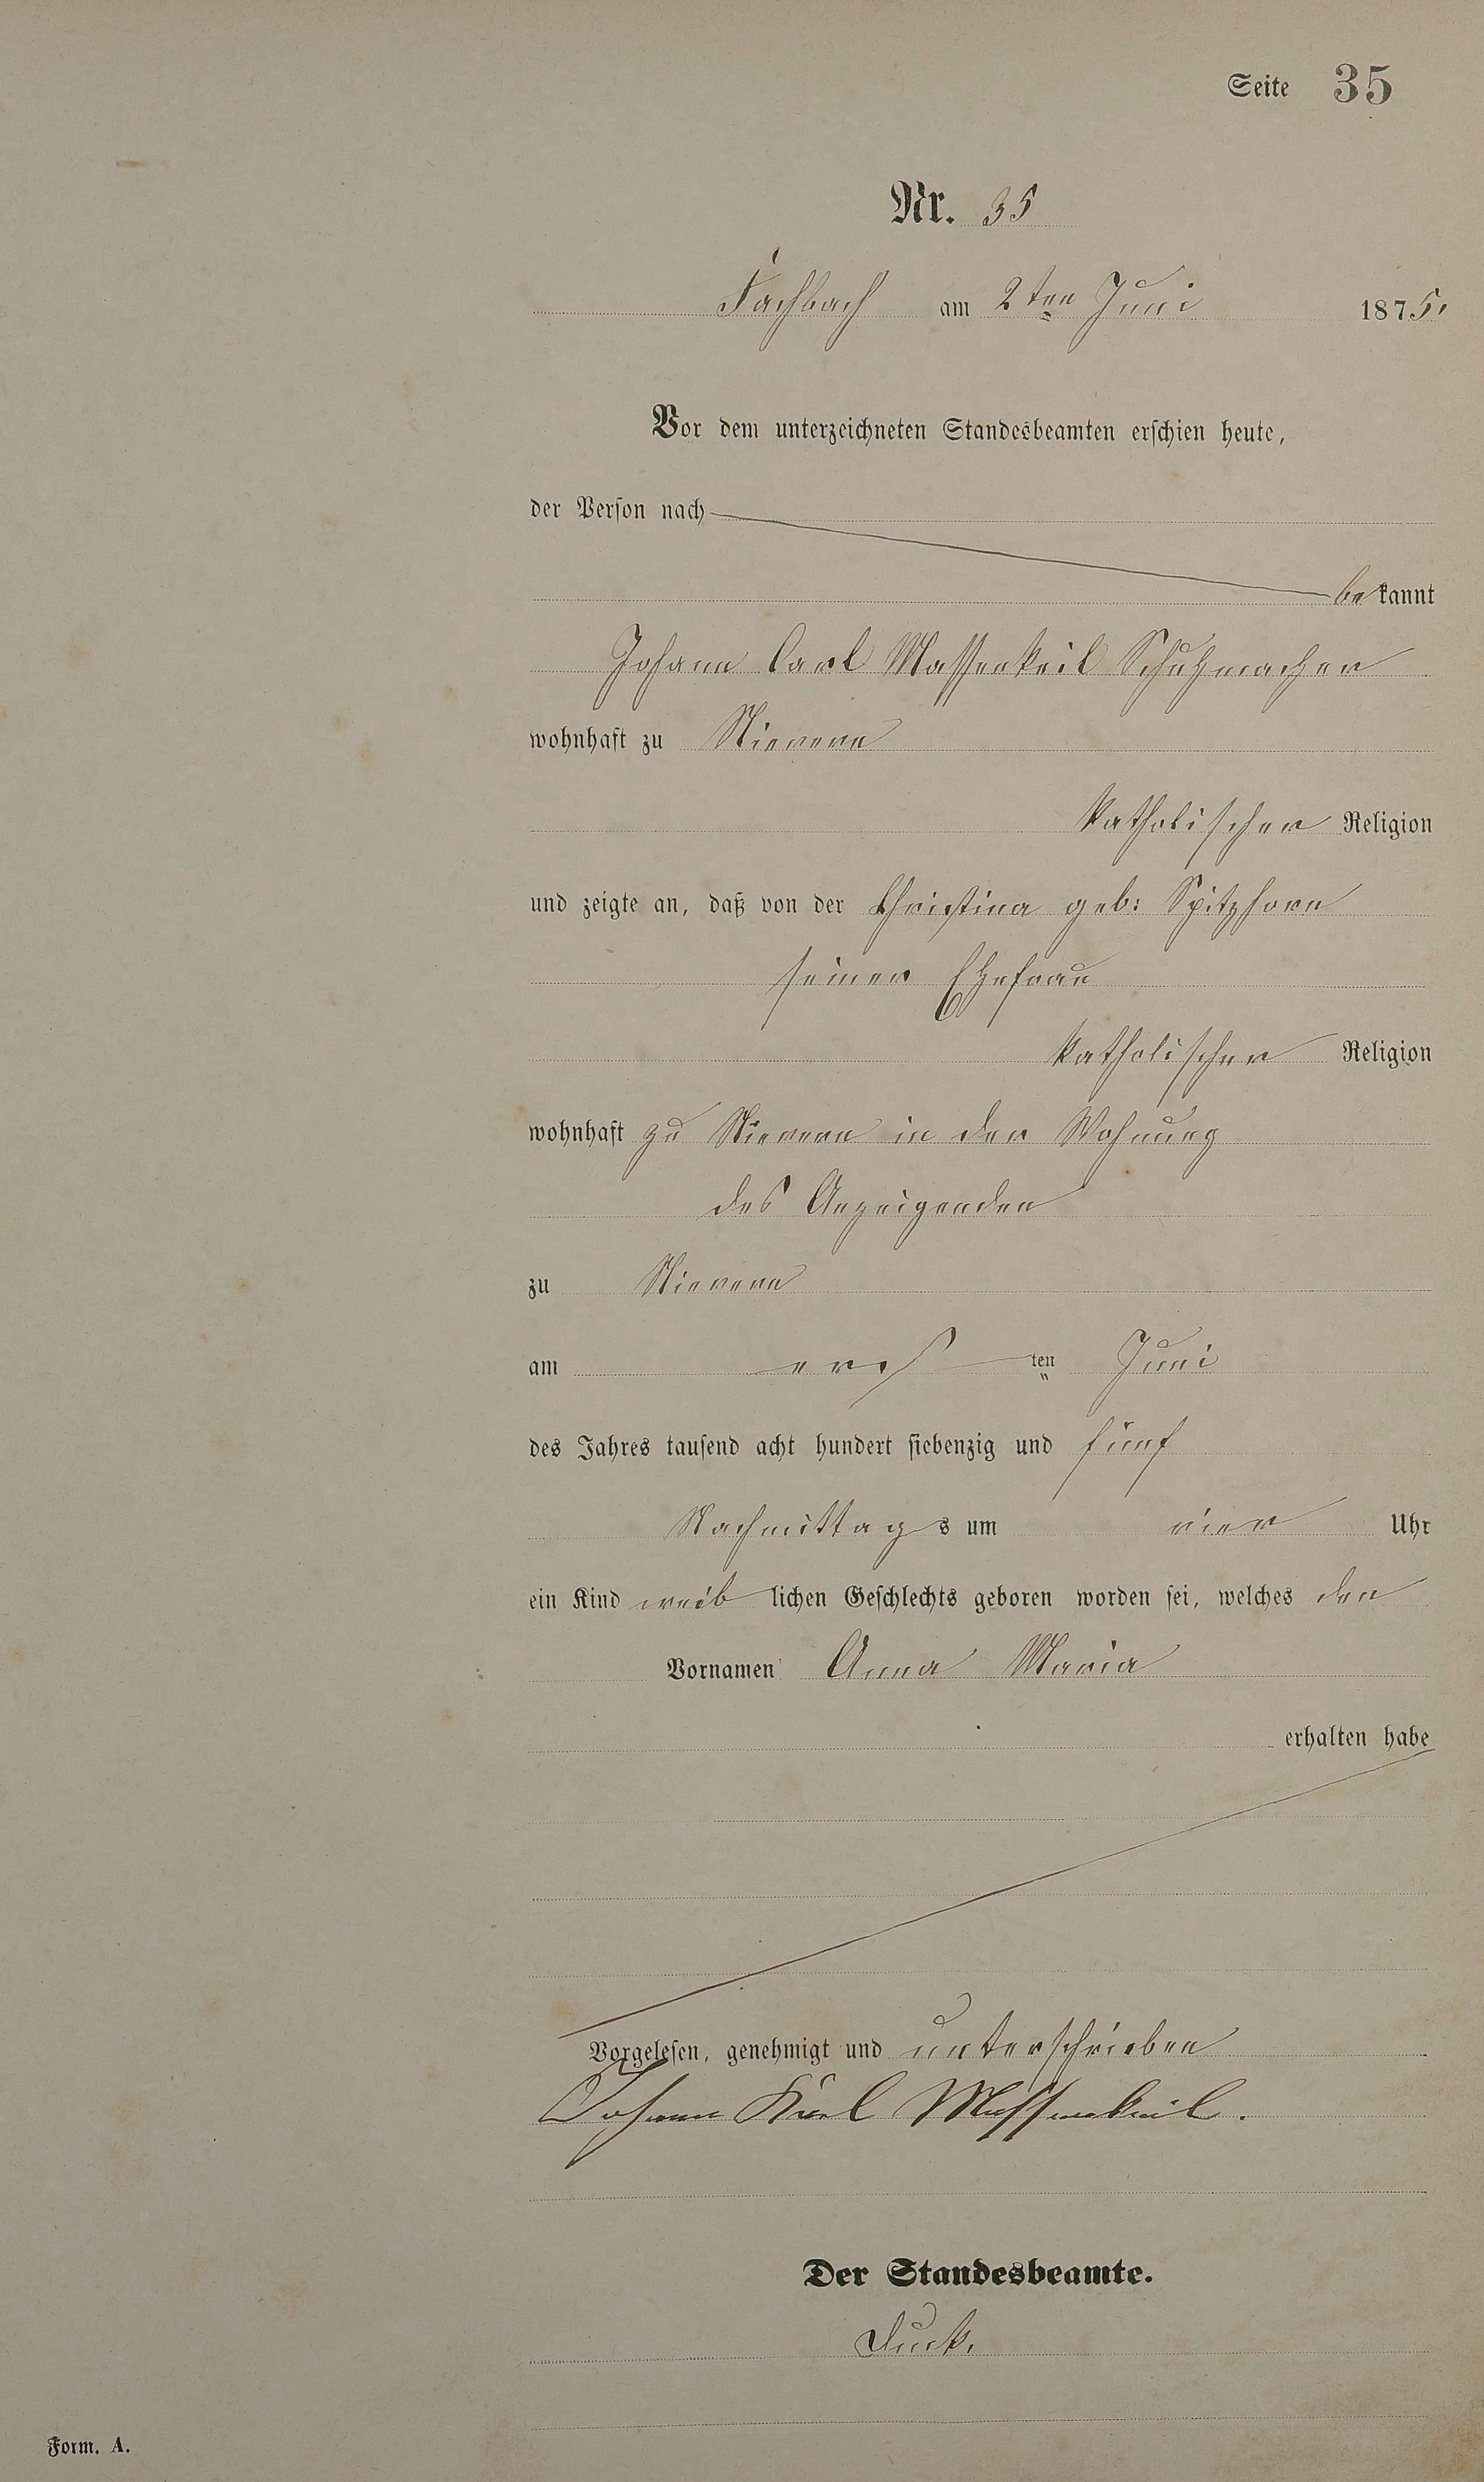 Seite 35
Nr. 35
Fachbach am 2ten Juni 1875.
Vor dem unterzeichneten Standesbeamten erschien heute,
der Person nach
bekannt
Johann Carl Massenkeil Schuhmacher
wohnhaft zu Nievern
katholischer Religion
und zeigte an, daß von der Christina geb: Spitzhorn
seiner Ehefrau
katholischer Religion
wohnhaft zu Nievern in der Wohnung
des Anzeigenden
zu Nievern
am ersten Juni
des Jahres tausend acht hundert siebenzig und fünf
Nachmittags um vier Uhr
ein Kind weiblichen Geschlechts geboren worden sei, welches den
Vornamen Anna Maria
erhalten habe
Vorgelesen, genehmigt und unterschrieben
Johann Karl Massenkeil.
Der Standesbeamte.
Form. A.